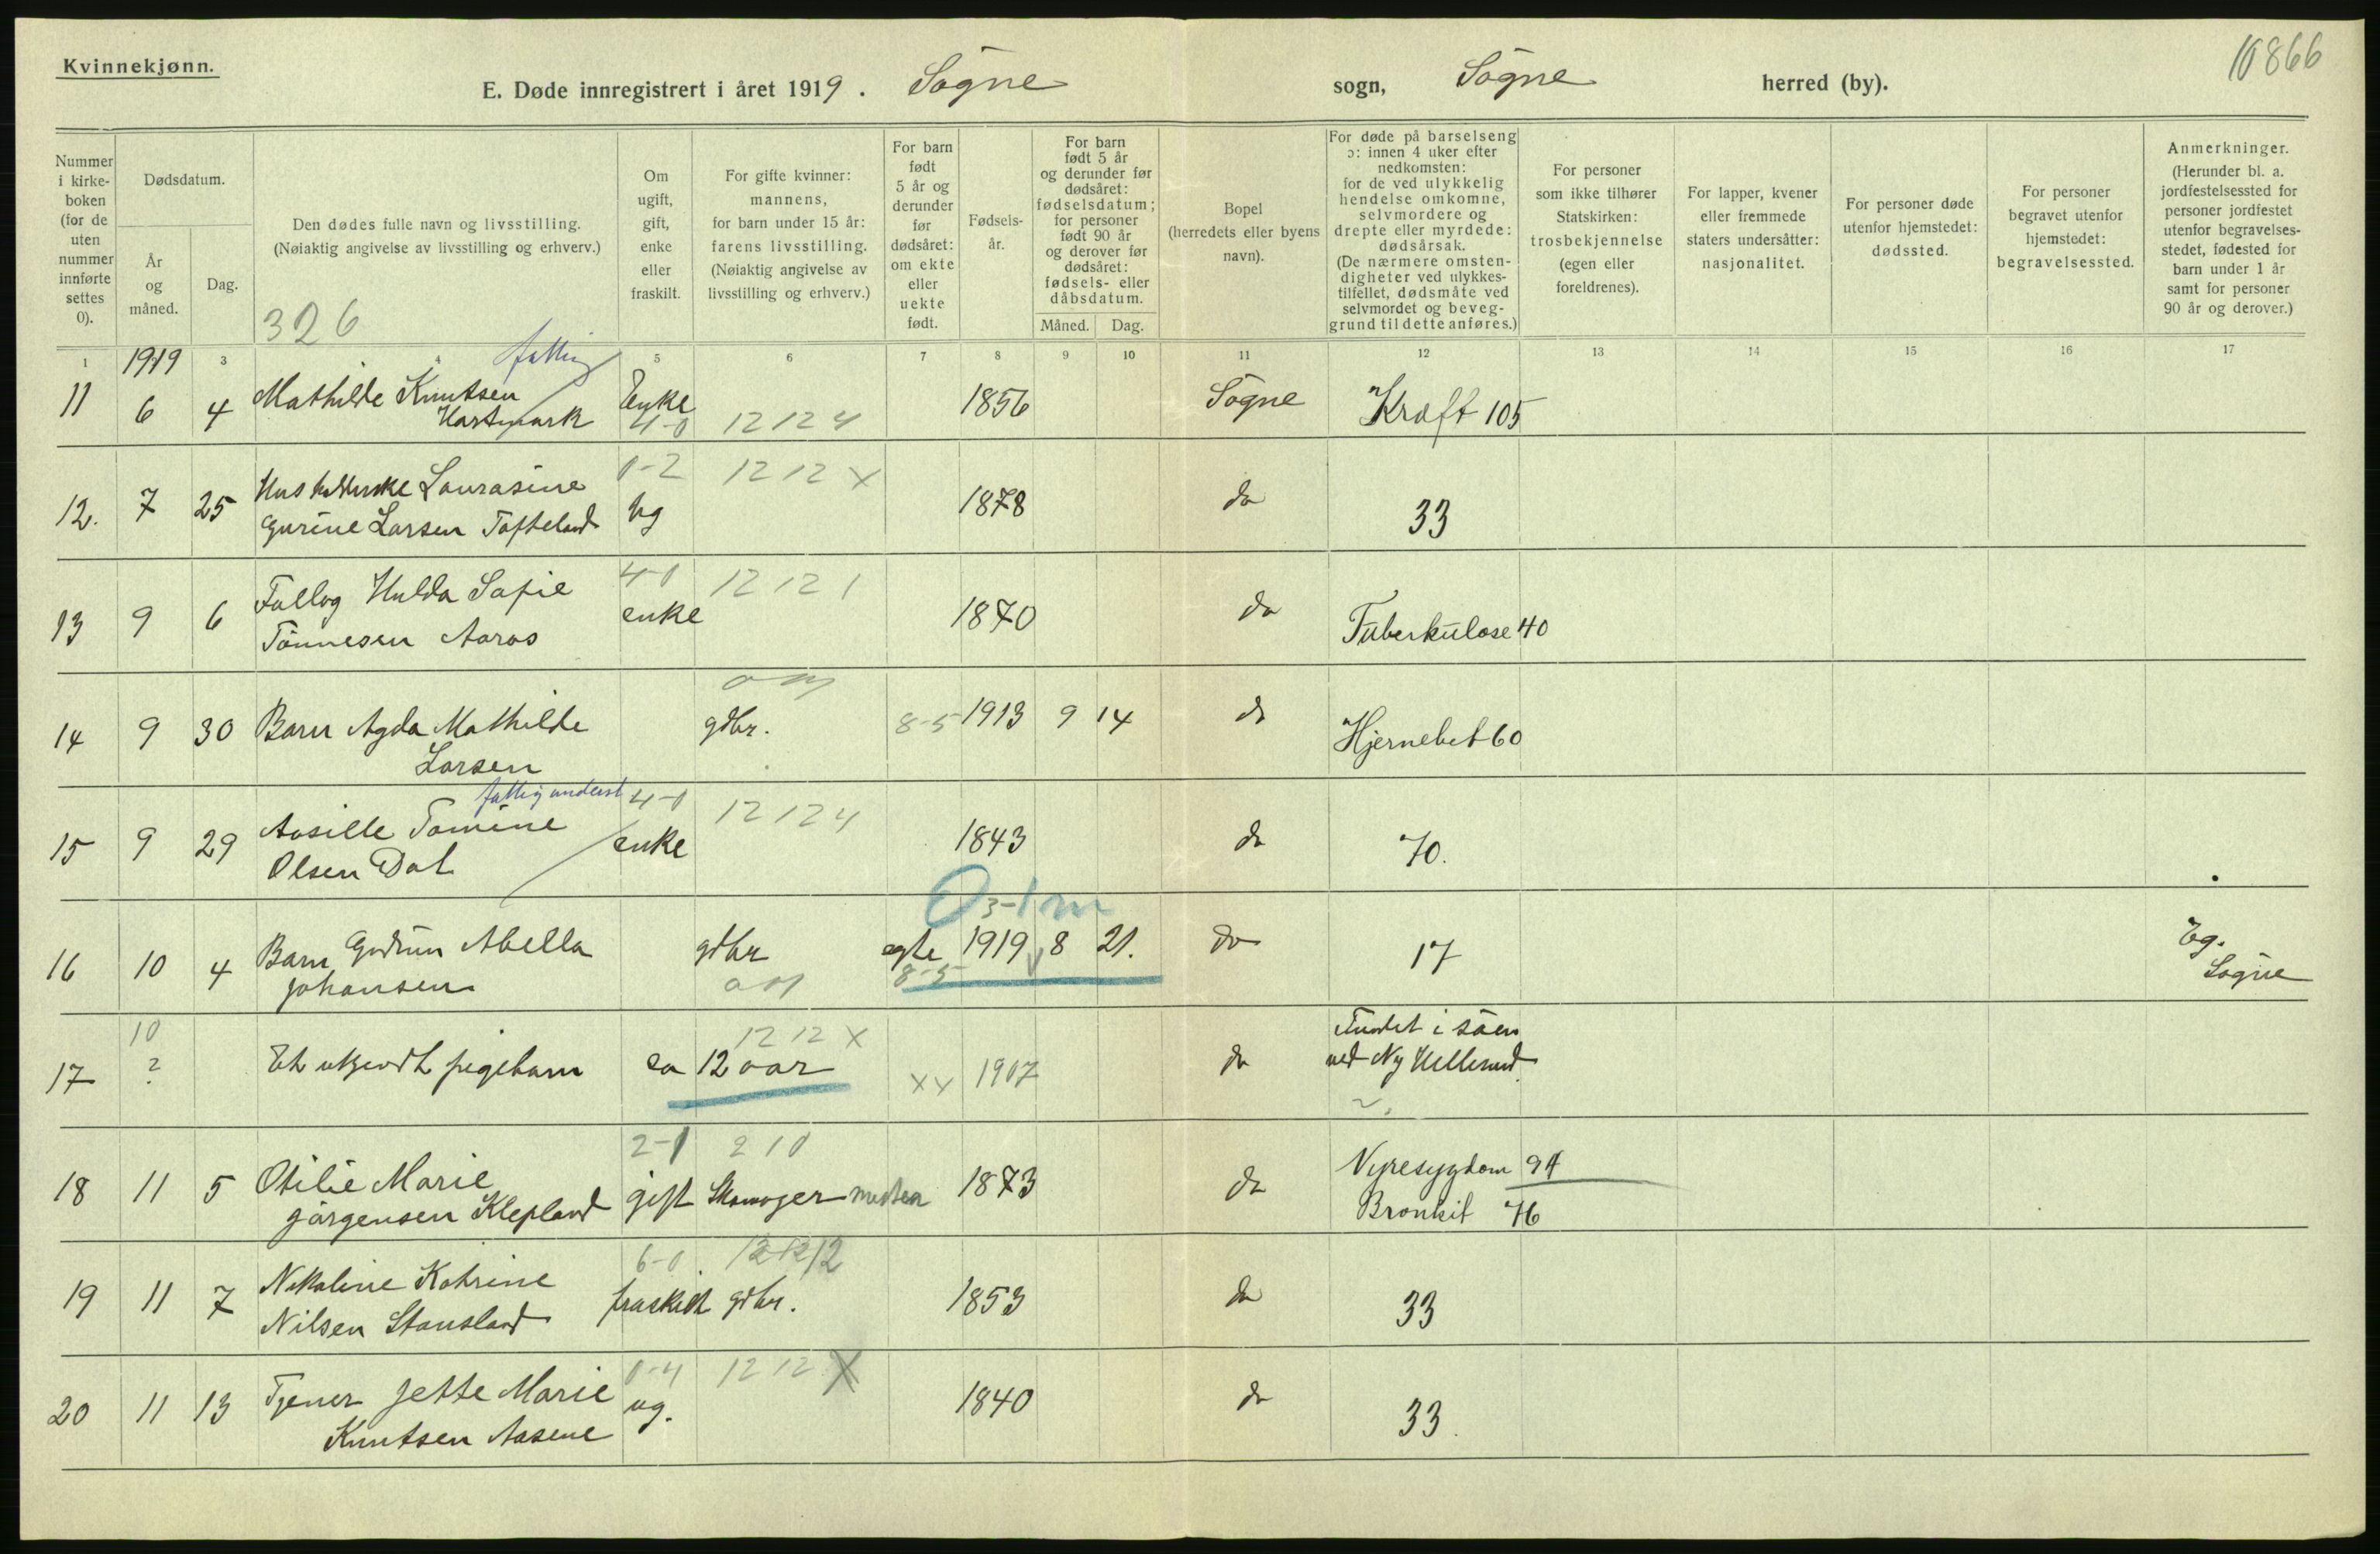 Kvinnekjønn.
10866
E. Døde innregistrert i året 1919. Søgne sogn, Søgne herred (by).
Nummer i kirkeboken (for de uten nummer innførte settes 0).
Dødsdatum.
År og måned.
Dag.
Den dødes fulle navn og livsstilling.
(Nøiaktig angivelse av livsstilling og erhverv.)
326
Om ugift, gift, enke eller fraskilt.
For gifte kvinner: mannens, for barn under 15 år: farens livsstilling. (Nøiaktig angivelse av livsstilling og erhverv.)
For barn født 5 år og derunder før dødsåret: om ekte eller uekte født.
Fødselsår.
For barn født 5 år og derunder før dødsåret: fødselsdatum; for personer født 90 år og derover før dødsåret: fødsels- eller dåbsdatum.
Måned.
Dag.
Bopel (herredets eller byens navn).
For døde på barselseng ɔ: innen 4 uker efter nedkomsten: for de ved ulykkelig hendelse omkomne, selvmordere og drepte eller myrdede: dødsårsak. (De nærmere omstendigheter ved ulykkestilfellet, dødsmåte ved selvmordet og beveggrund til dette anføres.)
For personer som ikke tilhører Statskirken: trosbekjennelse (egen eller foreldrenes).
For lapper, kvener eller fremmede staters undersåtter: nasjonalitet.
For personer døde utenfor hjemstedet: dødssted.
For personer begravet utenfor hjemstedet: begravelsessted.
Anmerkninger. (Herunder bl. a. jordfestelsessted for personer jordfestet utenfor begravelsesstedet, fødested for barn under 1 år samt for personer 90 år og derover.)
1 3 4 5 6 7 8 9 10 11 12 13 14 15 16 17
1919 fattig
11 6 4 Mathilde Knutsen Enke 1856 Søgne Kræft 105
Hartmark 4-0 12 12 4
0-2 12 12 X
12. 7 25 Husholderske Laurasine ug 1878 do 33
Gurine Larsen Tofteland
4-0 12 12 1
13 9 6 Follog Hulda Sofie enke 1870 do Tuberkulose 40
Tønnesen Aaros
14 9 30 Barn Agda Mathilde gdbr. 8-5 1913 9 14 do Hjernebet 60
Larsen
fattigunderst 4-0 12 12 4
15 9 29 Aasille Tomine enke 1843 do 70.
Olsen Dal
0 3-1 m
16 10 4 Barn Gudrun Abella gdbr egte 1919 8 21. do 17 Eg.
Johansen 8-5 Søgne
10 12 12 X
17 ? Et ukjendt pigebarn ca 12 aar xx 1907 do Fundet i søen
ved Ny Hellesund.
2-1 2 10
18 11 5 Otilie Marie gift Skomager mester 1873 do Nyresygdom 94
Jørgensen Klepland Bronkit 76
6-0 12 12 12
19 11 7 Nikoline Katrine fraskilt gdbr. 1853 do 33
Nilsen Stausland
0-4 12 12 X
20 11 13 Tjener Jette Marie ug. 1840 do 33.
Knutsen Aasene